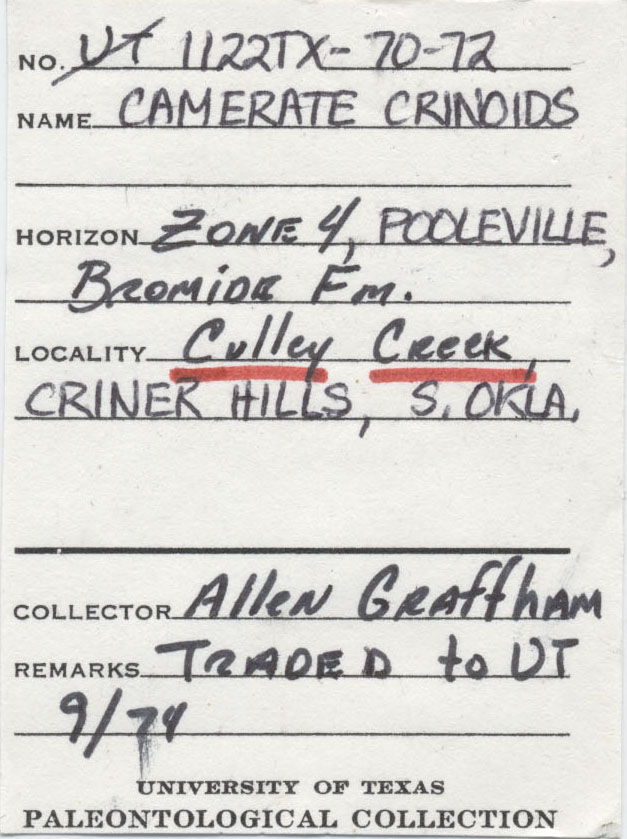 NO. UT 1122TX-70-72
NAME CAMERATE CRINOIDS
HORIZON ZONE 4, POOLEVILLE,
BROMIDE Fm.
LOCALITY Culley Creek,
CRINER HILLS, S. OKLA.
COLLECTOR Allen Graffham
REMARKS TRADED to UT
9/74
UNIVERSITY OF TEXAS
PALEONTOLOGICAL COLLECTION